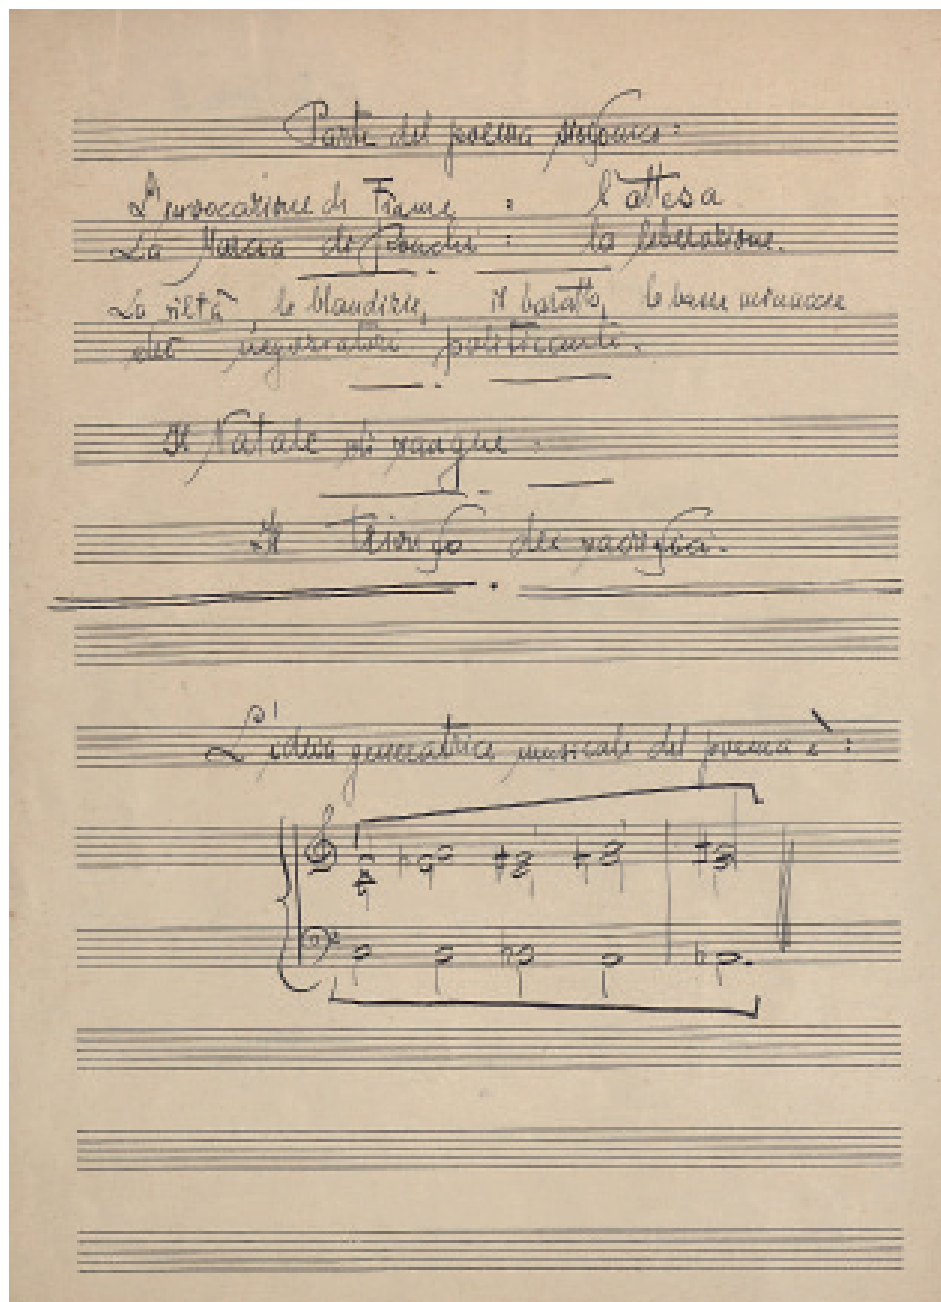 Parte del poema sinfonico:
L'invocazione di Fiume : l'attesa
La Marcia di Ronchi : la liberazione.
La viltà le blandizie, il baratto, le basse minacce
dei negoziatori politicanti.
Il Natale di sangue.
Il trionfo dei sacrifici.
L'idea generatrice musicale del poema è: